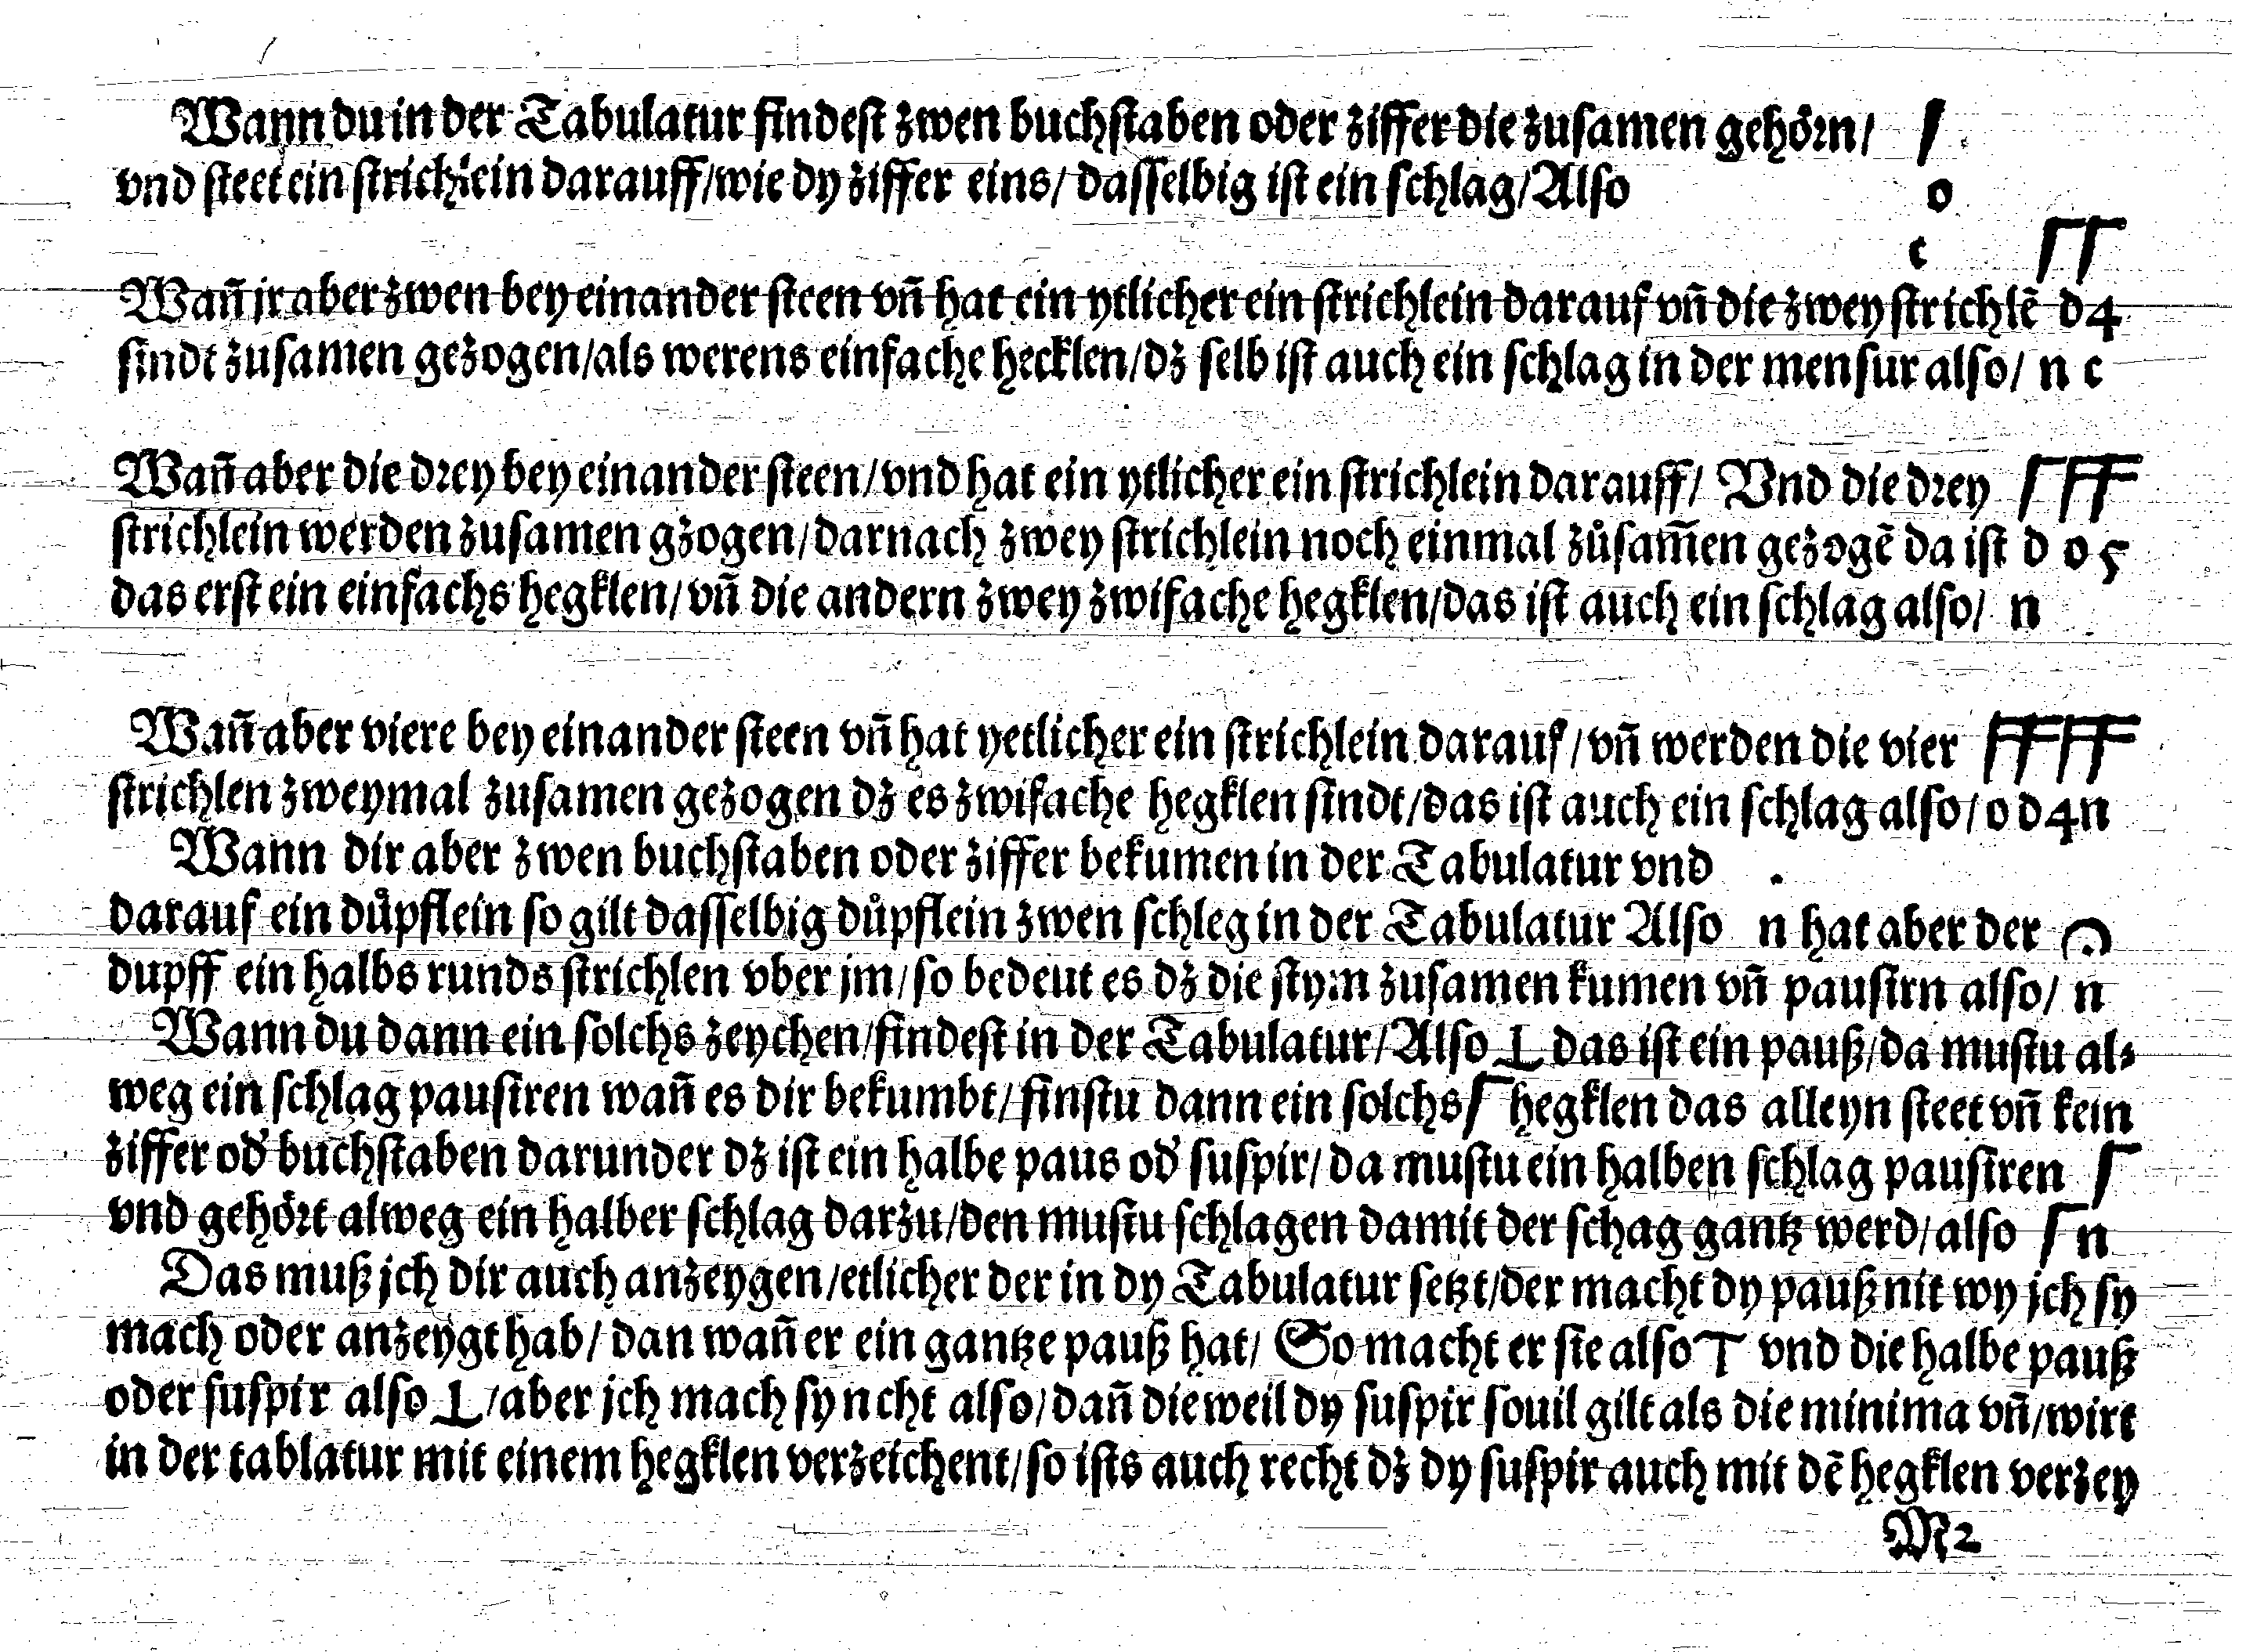 Wann du in der Tabulatur findest zwen buchstaben oder ziffer die zusamen gehörn/
vnd steet ein strichlein darauff/wie dy ziffer eins/ dasselbig ist ein schlag/Also o
c
Wañ jr aber zwen bey einander steen vñ hat ein ytlicher ein strichlein darauf vñ die zwey strichlē d4
sindt zusamen gezogen/als werens einfache hecklen/dz selb ist auch ein schlag in der mensur also/ n c
Wañ aber die drey bey einander steen/vnd hat ein ytlicher ein strichlein darauff/ Vnd die drey
strichlein werden zusamen gzogen/darnach zwey strichlein noch einmal zůsam̄en gezogē da ist d o 5
das erst ein einfachs hegklen/vñ die andern zwey zwifache hegklen/das ist auch ein schlag also/ n
Wañ aber viere bey einander steen vñ hat yetlicher ein strichlein darauf/vñ werden die vier
strichlen zweymal zusamen gezogen dz es zwifache hegklen sindt/das ist auch ein schlag also/ o d 4 n
Wann dir aber zwen buchstaben oder ziffer bekumen in der Tabulatur vnd .
darauf ein důpflein so gilt dasselbig důpflein zwen schleg in der Tabulatur Also n hat aber der 𝄐
dupff ein halbs runds strichlen vber jm/so bedeut es dz die stym zusamen kumen vñ pausirn also/ n
Wann du dann ein solchs zeychen/findest in der Tabulatur/Also ⊥ das ist ein pauß/da mustu al⸗
weg ein schlag pausiren wañ es dir bekumbt/finstu dann ein solchs Γ hegklen das alleyn steet vñ kein
ziffer od' buchstaben darunder dz ist ein halbe paus od' suspir/da mustu ein halben schlag pausiren Γ
vnd gehört alweg ein halber schlag darzu/den mustu schlagen damit der schag gantz werd/also Γ n
Das muß jch dir auch anzeygen/etlicher der in dy Tabulatur setzt/der macht dy pauß nit wy jch sy
mach oder anzeygt hab/ dan wañ er ein gantze pauß hat/ So macht er sie also T vnd die halbe pauß
oder suspir also ⊥/aber jch mach sy ncht also/dañ dieweil dy suspir souil gilt als die minima vñ/wirt
in der tablatur mit einem hegklen verzeichent/so ists auch recht dz dy suspir auch mit dē hegklen verzey
M 2